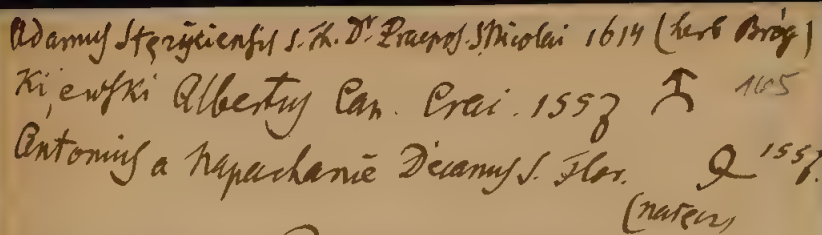 Adamus Stęzyciensis S. Th. Dr Praepos. S Nicolai 1614 (herb Bróg)
Kijewski Albertus Can. Crac. 1557 1605
Antonius a Napachanie Decanus S. Flor. 1557.
(nałęcz